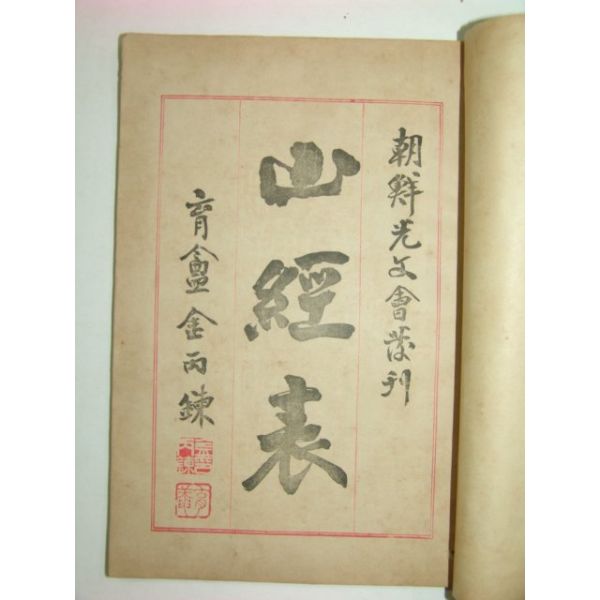 朝鮮光文會發刊
山經表
育盦 金丙鍊